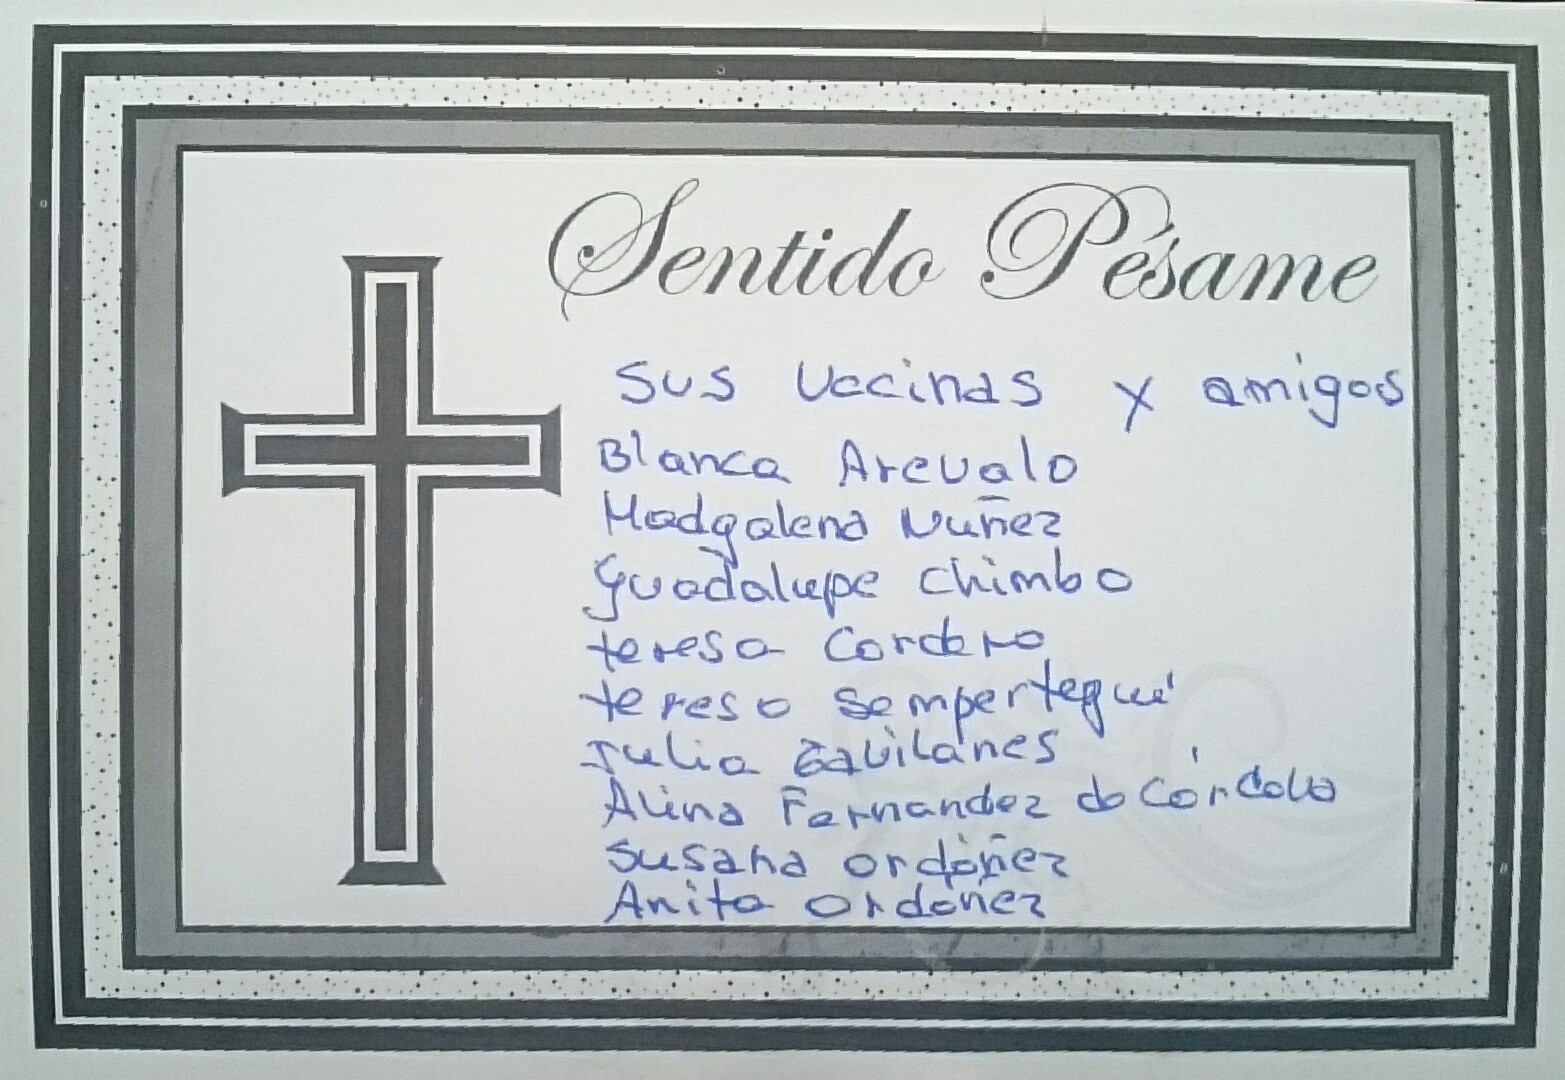 Sentido Pésame
Sus Vecinas y amigos
Blanca Arevalo
Madgalena Nuñez
Guadalupe Chimbo
teresa Cordero
teresa Sempertegui
Julia Gavilánes
Alina Fernandez de Córdova
Susana Ordóñez
Anita Ordoñez